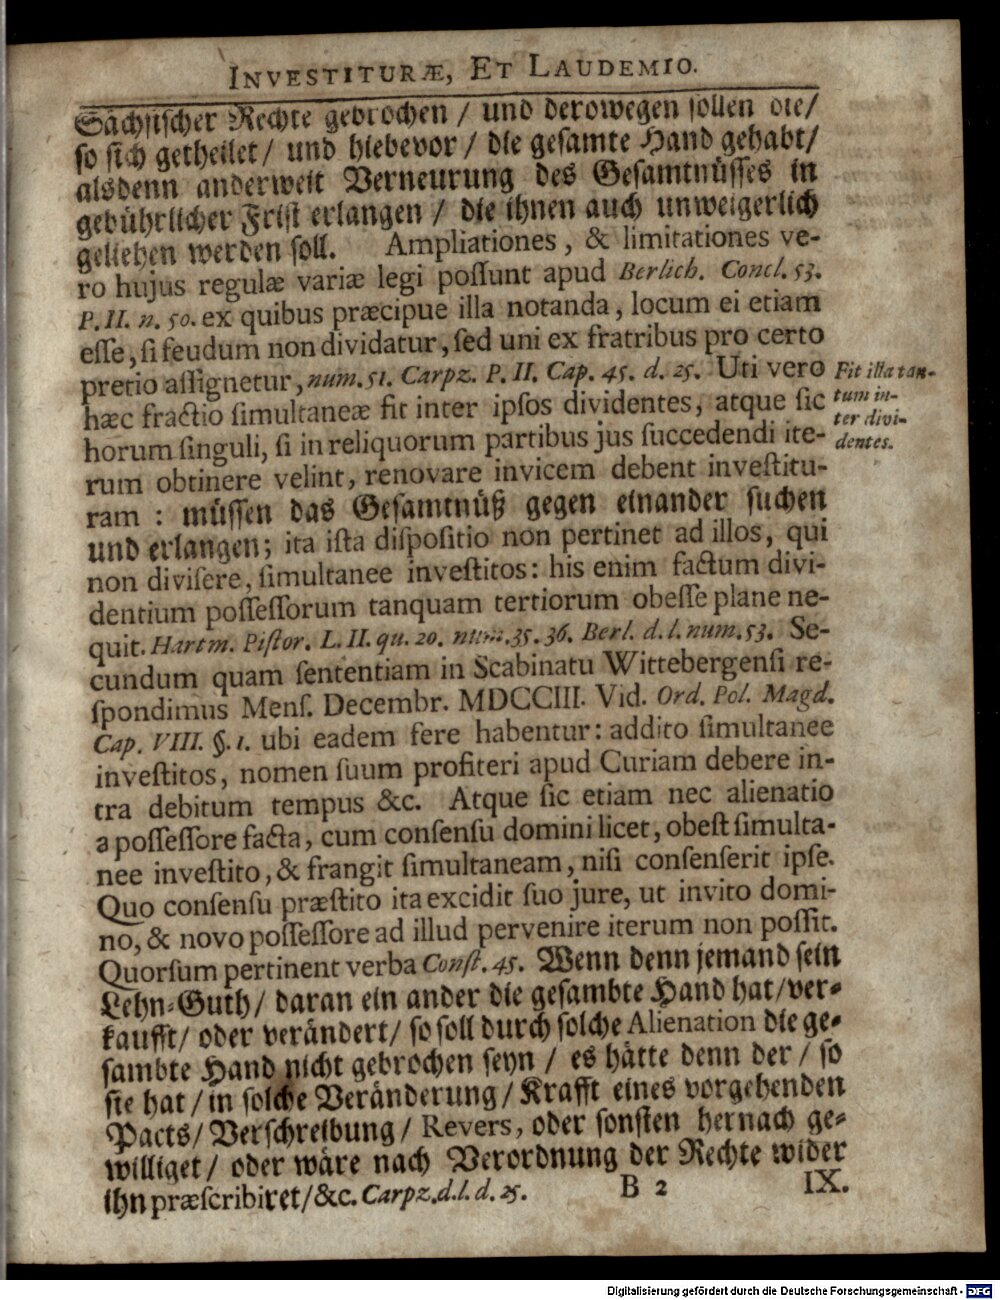 INVESTITURÆ, ET LAUDEMIO.
Sächsischer Rechte gebrochen / und derowegen sollen die/
so sich getheilet/ und hiebevor / die gesamte Hand gehabt/
alsdenn anderweit Verneurung des Gesamtnüsses in
gebührlicher Frist erlangen / die ihnen auch unweigerlich
geliehen werden soll. Ampliationes, & limitationes ve-
ro hujus regulæ variæ legi poſſunt apud Berlich. Concl. 53.
P. II. n. 50. ex quibus præcipue illa notanda, locum ei etiam
eſſe, ſi feudum non dividatur, ſed uni ex fratribus pro certo
pretio aſſignetur, num. 51. Carpz. P. II. Cap. 45. d. 25. Uti vero
hæc fractio ſimultaneæ fit inter ipſos dividentes, atque ſic
horum ſinguli, ſi in reliquorum partibus jus ſuccedendi ite-
rum obtinere velint, renovare invicem debent inveſtitu-
ram : müssen das Gesamtnüß gegen einander suchen
und erlangen; ita iſta diſpoſitio non pertinet ad illos, qui
non diviſere, ſimultanee inveſtitos: his enim factum divi-
dentium poſſeſſorum tanquam tertiorum obeſſe plane ne-
quit. Hartm. Piſtor. L. II. qu. 20. num. 35. 36. Berl. d. l. num. 53. Se-
cundum quam ſententiam in Scabinatu Wittebergenſi re-
ſpondimus Menſ. Decembr. MDCCIII. Vid. Ord. Pol. Magd.
Cap. VIII. §. 1. ubi eadem fere habentur: addito ſimultanee
inveſtitos, nomen ſuum profiteri apud Curiam debere in-
tra debitum tempus &c. Atque ſic etiam nec alienatio
a poſſeſſore facta, cum conſenſu domini licet, obeſt ſimulta-
nee inveſtito, & frangit ſimultaneam, niſi conſenſerit ipſe.
Quo conſenſu præſtito ita excidit ſuo jure, ut invito domi-
no, & novo poſſeſſore ad illud pervenire iterum non poſſit.
Quorſum pertinent verba Conſt. 45. Wenn denn jemand sein
Lehn-Guth/ daran ein ander die gesambte Hand hat/ ver-
kaufft/ oder verändert/ so soll durch solche Alienation die ge-
sambte Hand nicht gebrochen seyn / es hätte denn der / so
sie hat / in solche Veränderung / Krafft eines vorgehenden
Pacts/ Verschreibung / Revers, oder sonsten hernach ge-
williget/ oder wäre nach Verordnung der Rechte wider
ihn præſcribiret/ &c. Carpz. d. l. d. 25.
B 2
IX.
Fit illa tan-
tum in-
ter divi-
dentes.
Digitalisierung gefördert durch die Deutsche Forschungsgemeinschaft - DFG